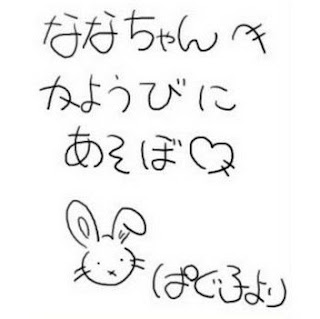 ななちゃんへ
かようびに
あそぼ♡
(ぱぐ子より)